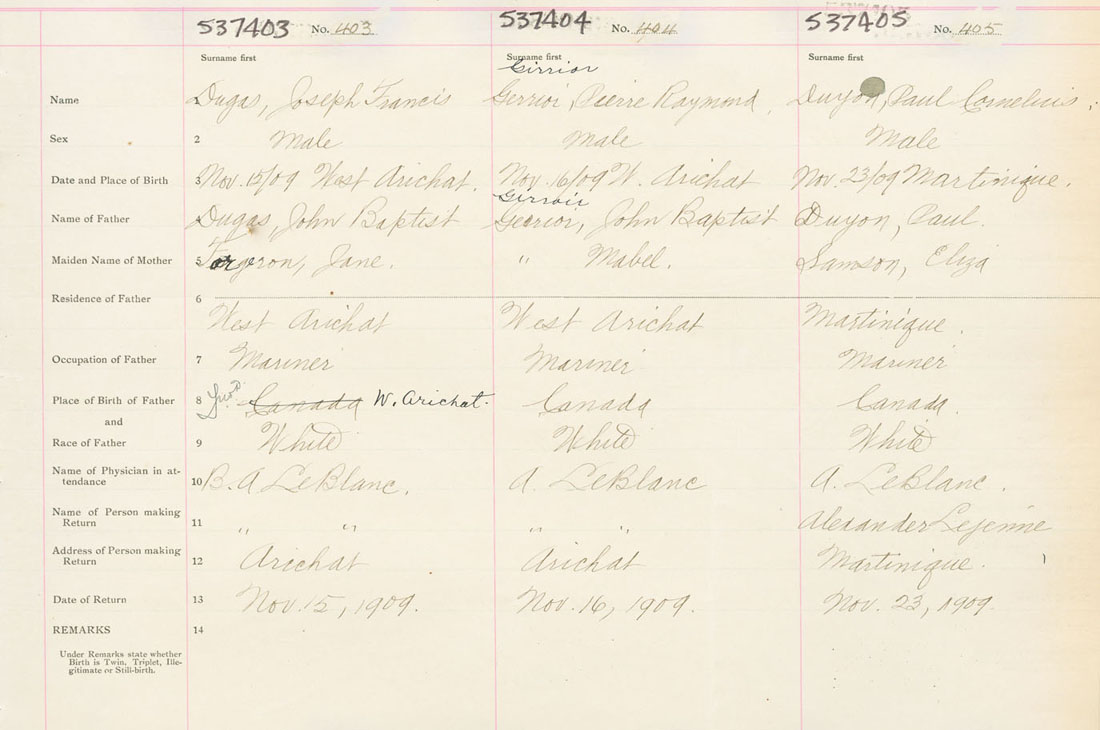 537403 No. 403 537404 No. 404 537405 No. 405
Surname first Surname first Surname first
Girrior
Name 1 Dugas, Joseph Francis Gerrior, Pierre Raymond, Duyon, Paul Cornelius,
Sex 2 Male Male Male
Date and Place of Birth 3 Nov. 15/09 West Arichat. Nov. 16/09 W. Arichat Nov. 23/09 Martinique.
Girroir
Name of Father Dugas, John Baptist Gerrior, John Baptist Duyon, Paul.
Maiden Name of Mother 5 Forgeron, Jane. " Mabel. Samson, Eliza
Residence of Father 6
West Arichat West Arichat Martinique.
Occupation of Father 7 Mariner Mariner Mariner
Place of Birth of Father 8 Canada W. Arichat. Canada Canada.
and
Race of Father 9 White White White
Name of Physician in at-
tendance 10 B. A. LeBlanc. A. LeBlanc A. LeBlanc.
Name of Person making
Return 11 " " " " Alexander Lejeune
Address of Person making
Return 12 Arichat Arichat Martinique.
Date of Return 13 Nov. 15, 1909. Nov. 16, 1909. Nov. 23, 1909.
REMARKS 14
Under Remarks state whether
Birth is Twin, Triplet, Ille-
gitimate or Still-birth.